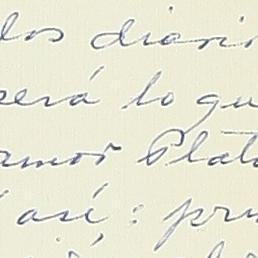 los diario
será lo que
amor Plató
así; : pru